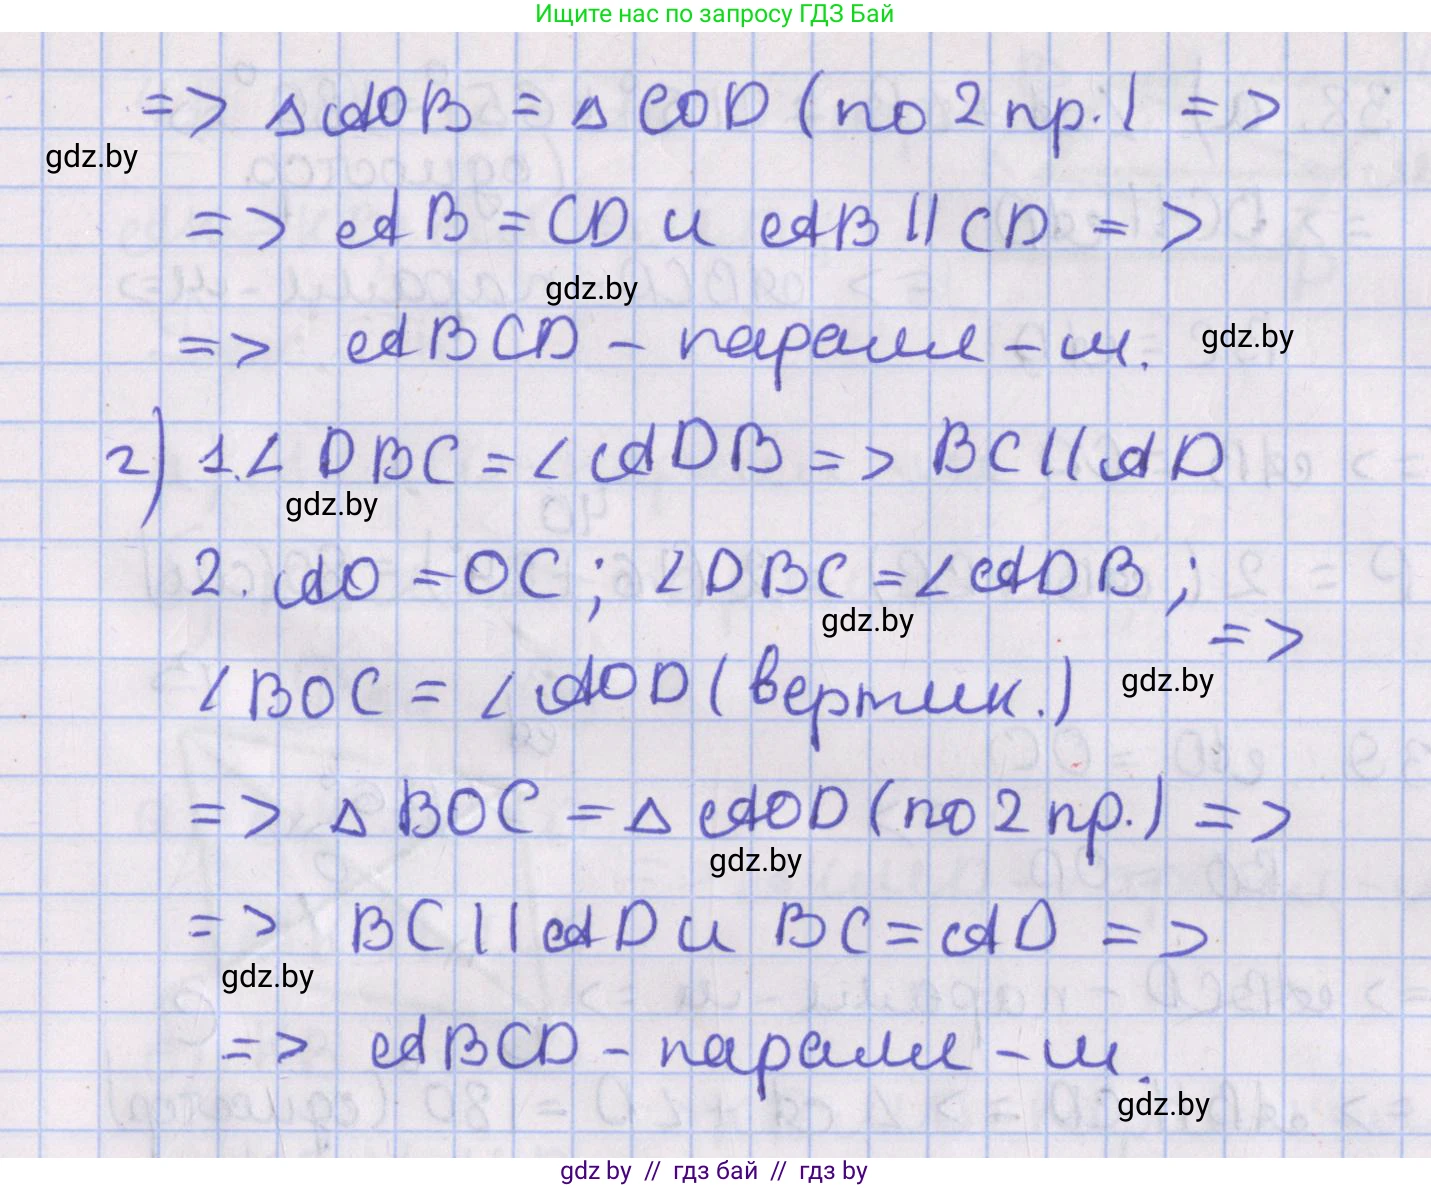 Ищите нас по запросу ГДЗ Бай
=> △AOB = △COD (по 2 пр.) =>
gdz.by
=> AB = CD и AB || CD =>
gdz.by
=> ABCD - паралл - м.
gdz.by
г) 1. ∠DBC = ∠ADB => BC || AD
gdz.by
2. AO = OC; ∠DBC = ∠ADB;
gdz.by
=>
∠BOC = ∠AOD (вертик.)
gdz.by
=> △BOC = △AOD (по 2 пр.) =>
gdz.by
=> BC || AD и BC = AD =>
gdz.by
=> ABCD - паралл - м.
gdz.by
gdz by // гдз бай // гдз by